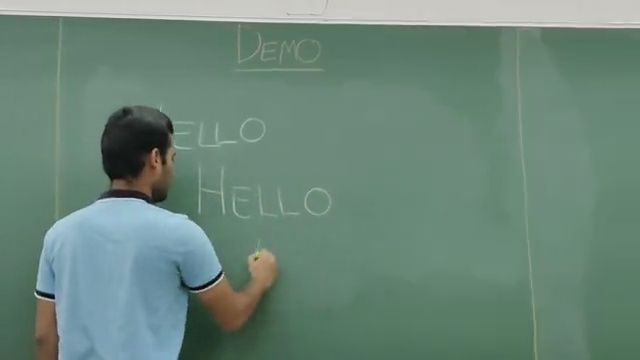 DEMO
HELLO
HELLO